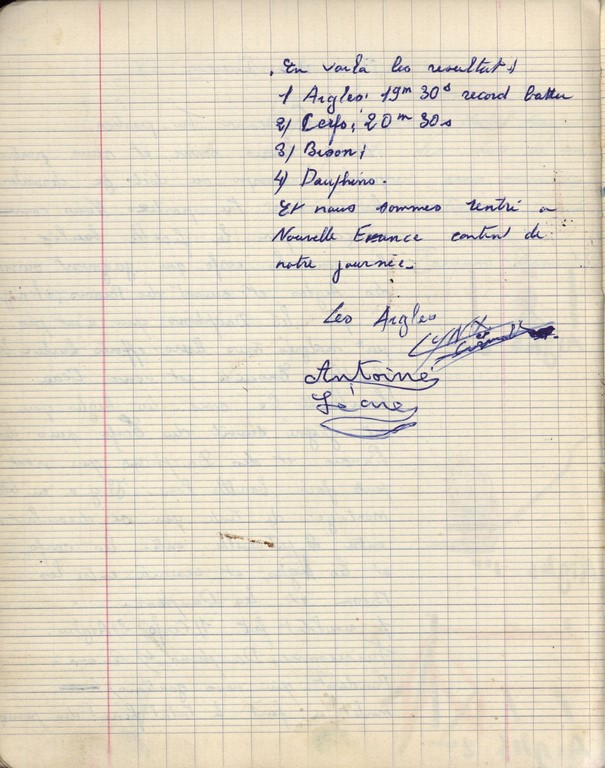 En voila les resultats
1) Aigles: 19m 30s record battu
2) Cerfs: 20m 30s
3) Bison;
4) Dauphins.
Et nous sommes rentré a
Nouvelle France content de
notre journée.
Les Aigles
LYNX
et
Antoine